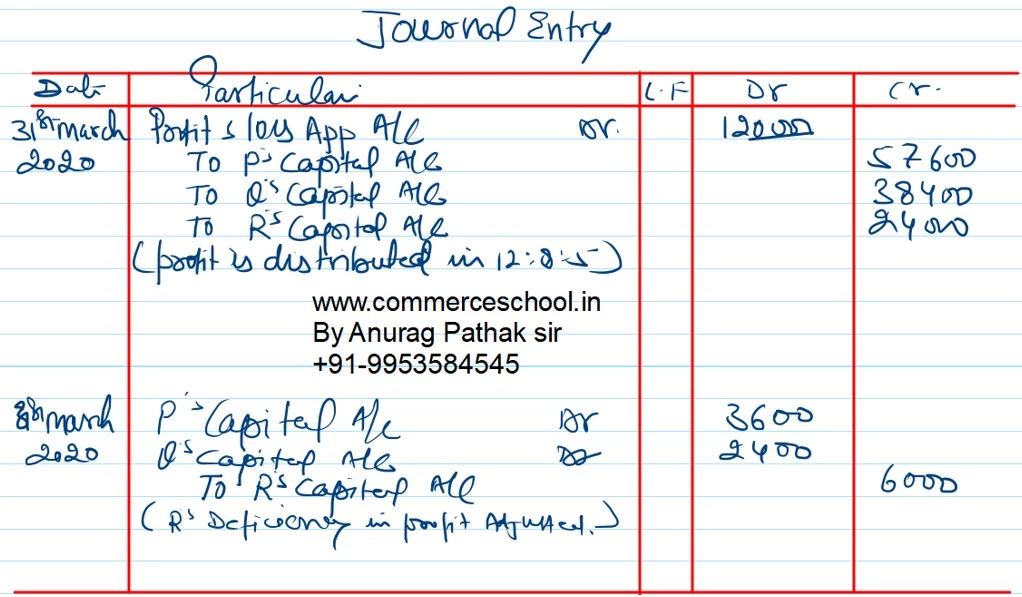 Journal Entry
Date Particular L.F Dr Cr.
31st march Profit & loss App A/c Dr. 120000
2020 To P's Capital A/c 57600
To Q's Capital A/c 38400
To R's Capital A/c 24000
(profit is distributed in 12:8:5)
www.commerceschool.in
By Anurag Pathak sir
+91-9953584545
31st march P's Capital A/c Dr 3600
2020 Q's Capital A/c Dr 2400
To R's Capital A/c 6000
(R's Deficiency in profit Adjusted.)